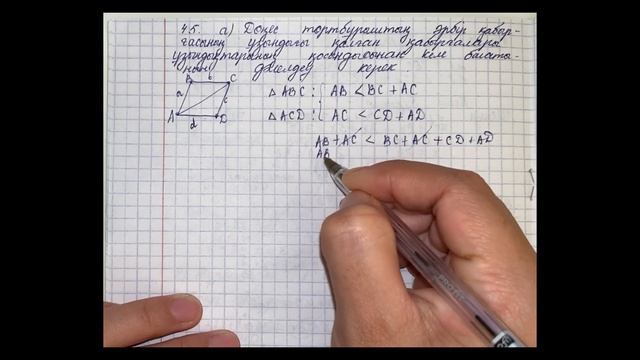 4.5. а) Дөңес төртбұрыштың әрбір қабыр-
ғасының ұзындығы қалған қабырғалары
ұзындықтарының қосындысынан кем болаты-
нын дәлелдеу керек.
B b C
a c
A d D
△ ABC : AB < BC + AC
△ ACD : AC < CD + AD
AB + AC < BC + AC + CD + AD
AB